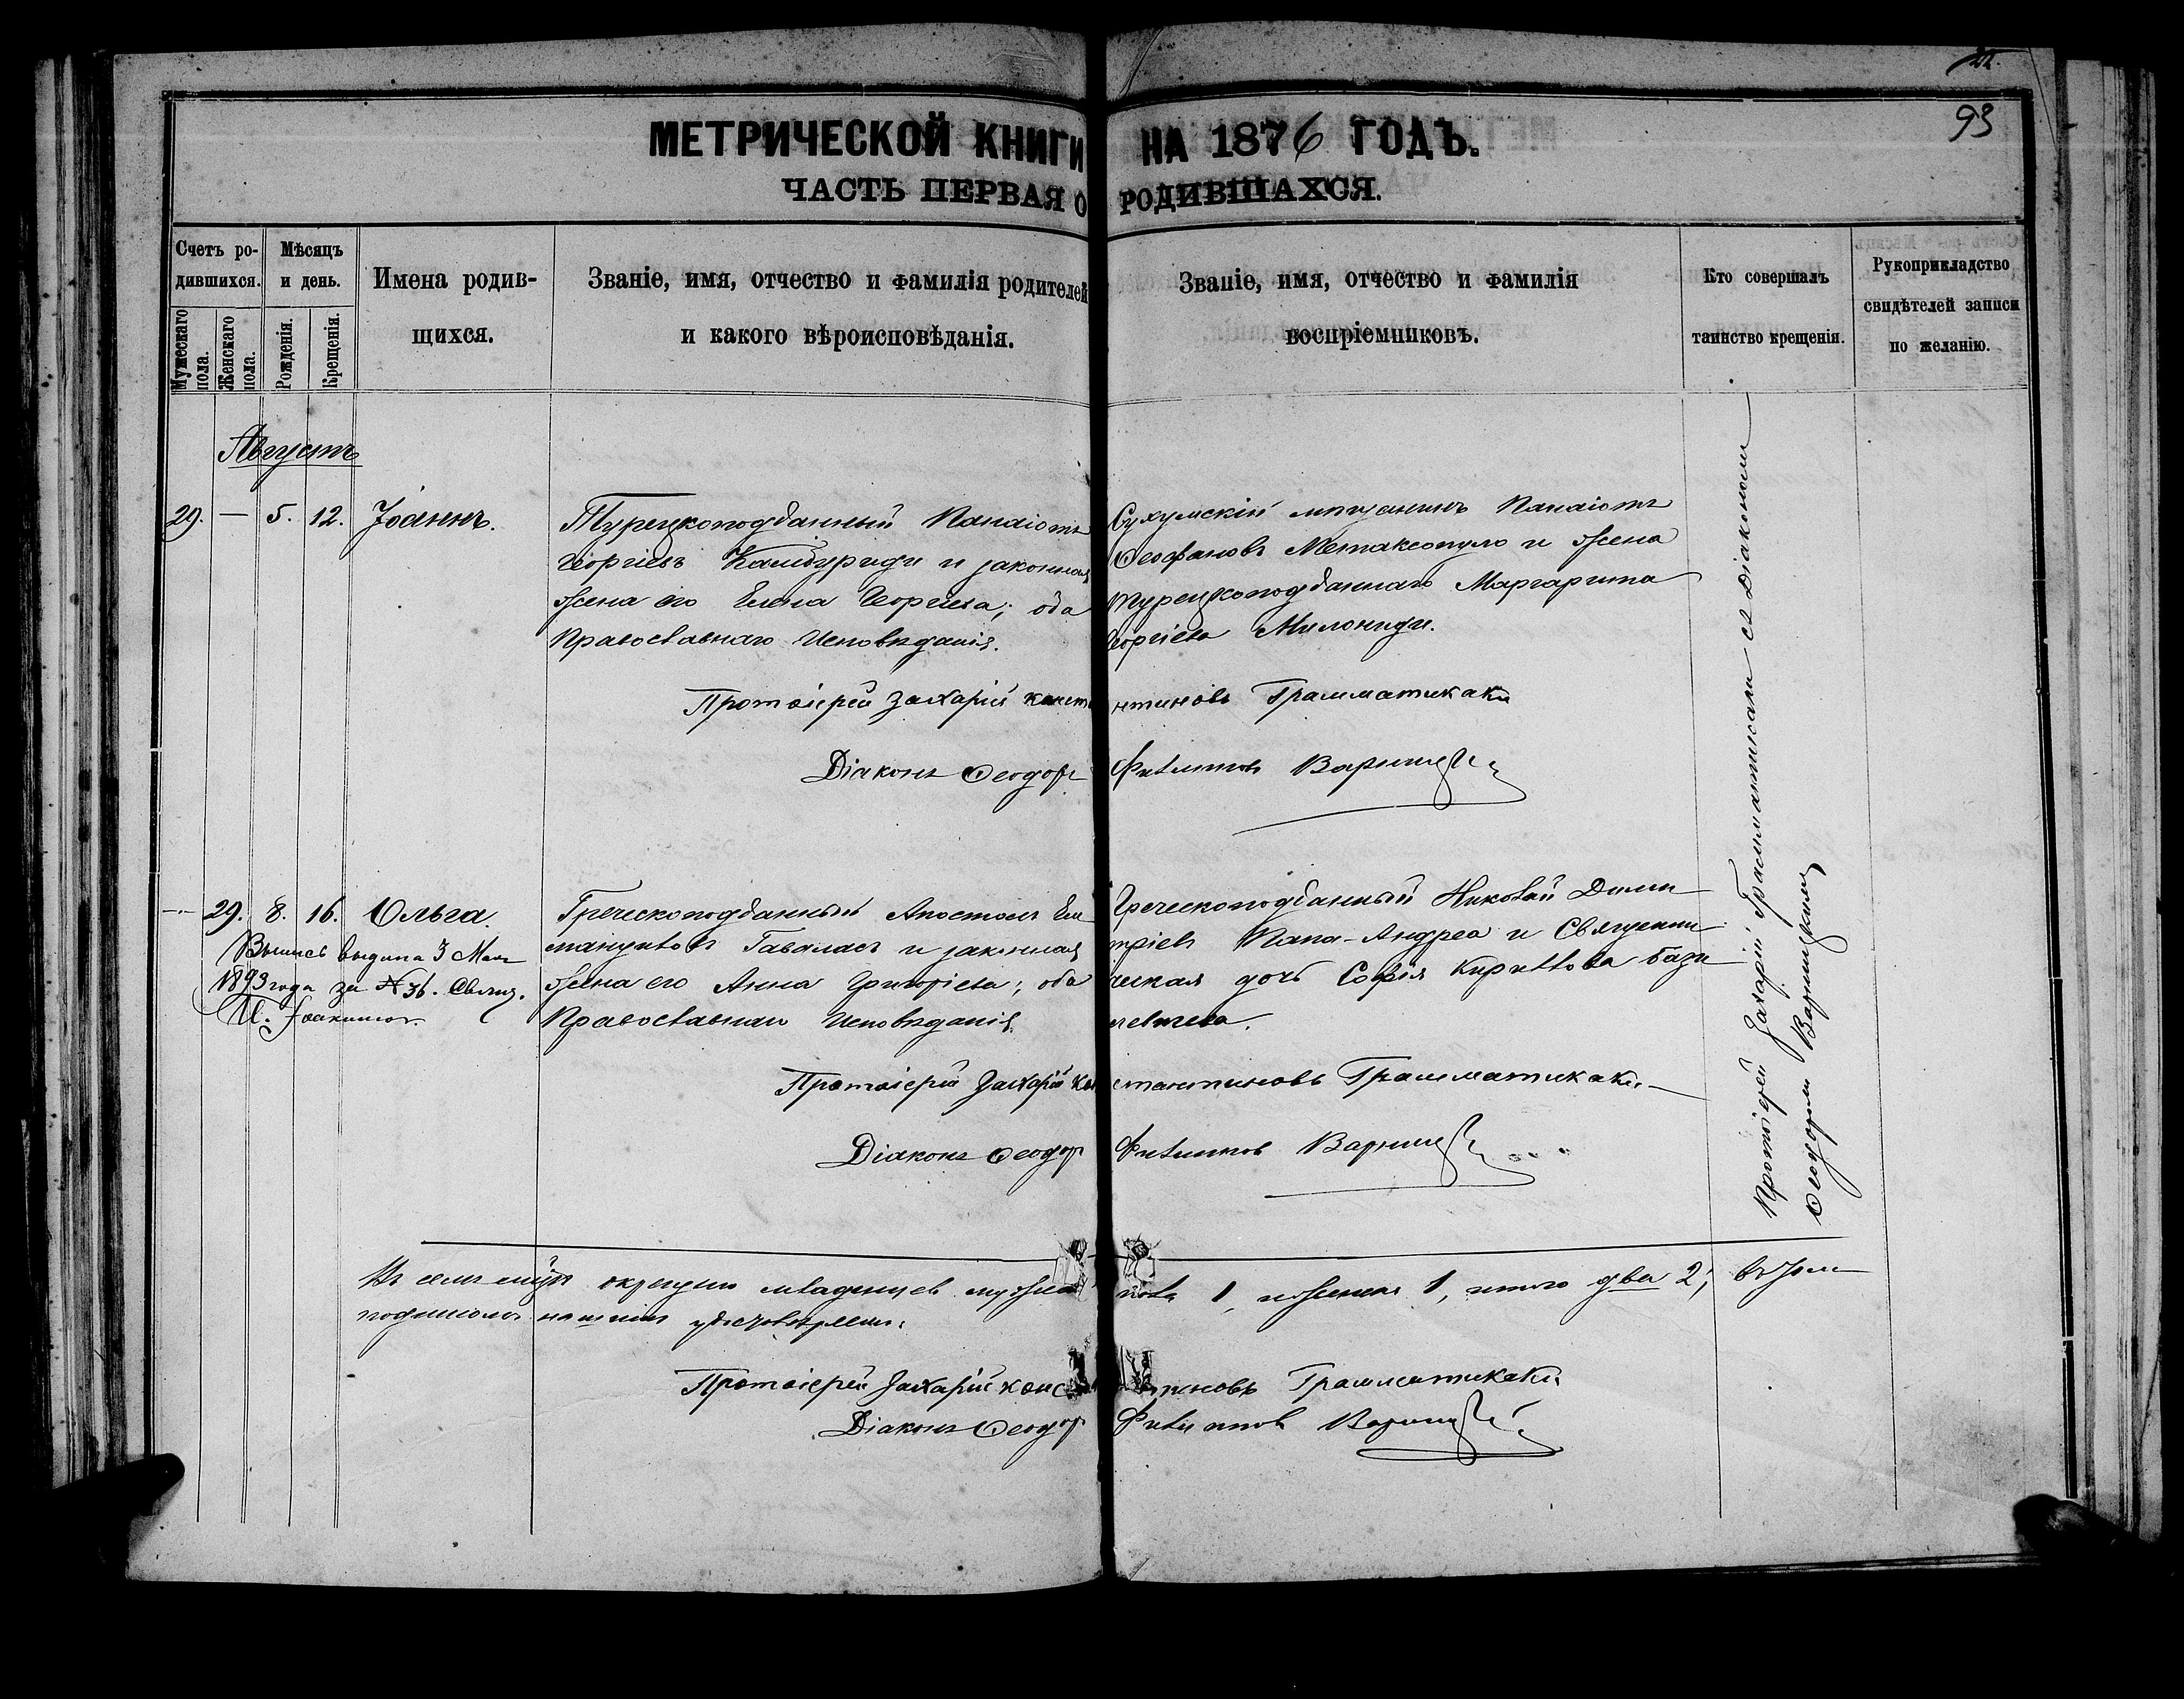 22.
93
МЕТРИЧЕСКОЙ КНИГИ НА 1876 ГОДЪ.
ЧАСТЬ ПЕРВАЯ О РОДИВШАХСЯ.
Счетъ ро-
дившихся.
Мужескаго пола.
Женскаго пола.
Мѣсяцъ
и день.
Рожденія.
Крещенія.
Имена родив-
шихся.
Званіе, имя, отчество и фамилія родителей
и какого вѣроисповѣданія.
Званіе, имя, отчество и фамилія
воспріемниковъ.
Кто совершалъ
таинство крещенія.
Рукоприкладство
свидѣтелей записи
по желанію.
Августъ
29. — 5. 12. Іоаннъ.
Турецкоподданный Панаіотъ
Георгіевъ Камбуриди и законная
жена его Елена Георгіева; оба
Православнаго Исповѣданія.
Сухумскій мѣщанинъ Панаіотъ
Ѳеофановъ Метаксопуло и жена
турецкоподданнаго Маргарита
Георгіева Милониди.
Протоіерей Захарій Константиновъ Грамматикаки
Діаконъ Ѳеодоръ Филипповъ
— 29. 8. 16. Ольга.
Выпись выдана 3 Мая
1893 года за № 36. Свящ.
И. Іоакимов.
Греческоподданный Апостолъ Ем
мануиловъ Гаваласъ и законная
жена его Анна Григорьева; оба
Православнаго Исповѣданія.
Греческоподданный Николай Дими
тріевъ Папа-Андреа и Священни
ческая дочь Софія Кириллова Вази
левичева.
Протоіерей Захарій Константиновъ Грамматикаки
Діаконъ Ѳеодоръ Филипповъ
Протоіерей Захарій Грамматикаки съ Діакономъ
Ѳеодоромъ
окрещено младенцевъ мужеска пола 1, и женска 1, итого два 2; въ чемъ
подписомъ нашимъ удостовѣряемъ.
Протоіерей Захарій Константиновъ Грамматикаки
Діаконъ Ѳеодоръ Филипповъ